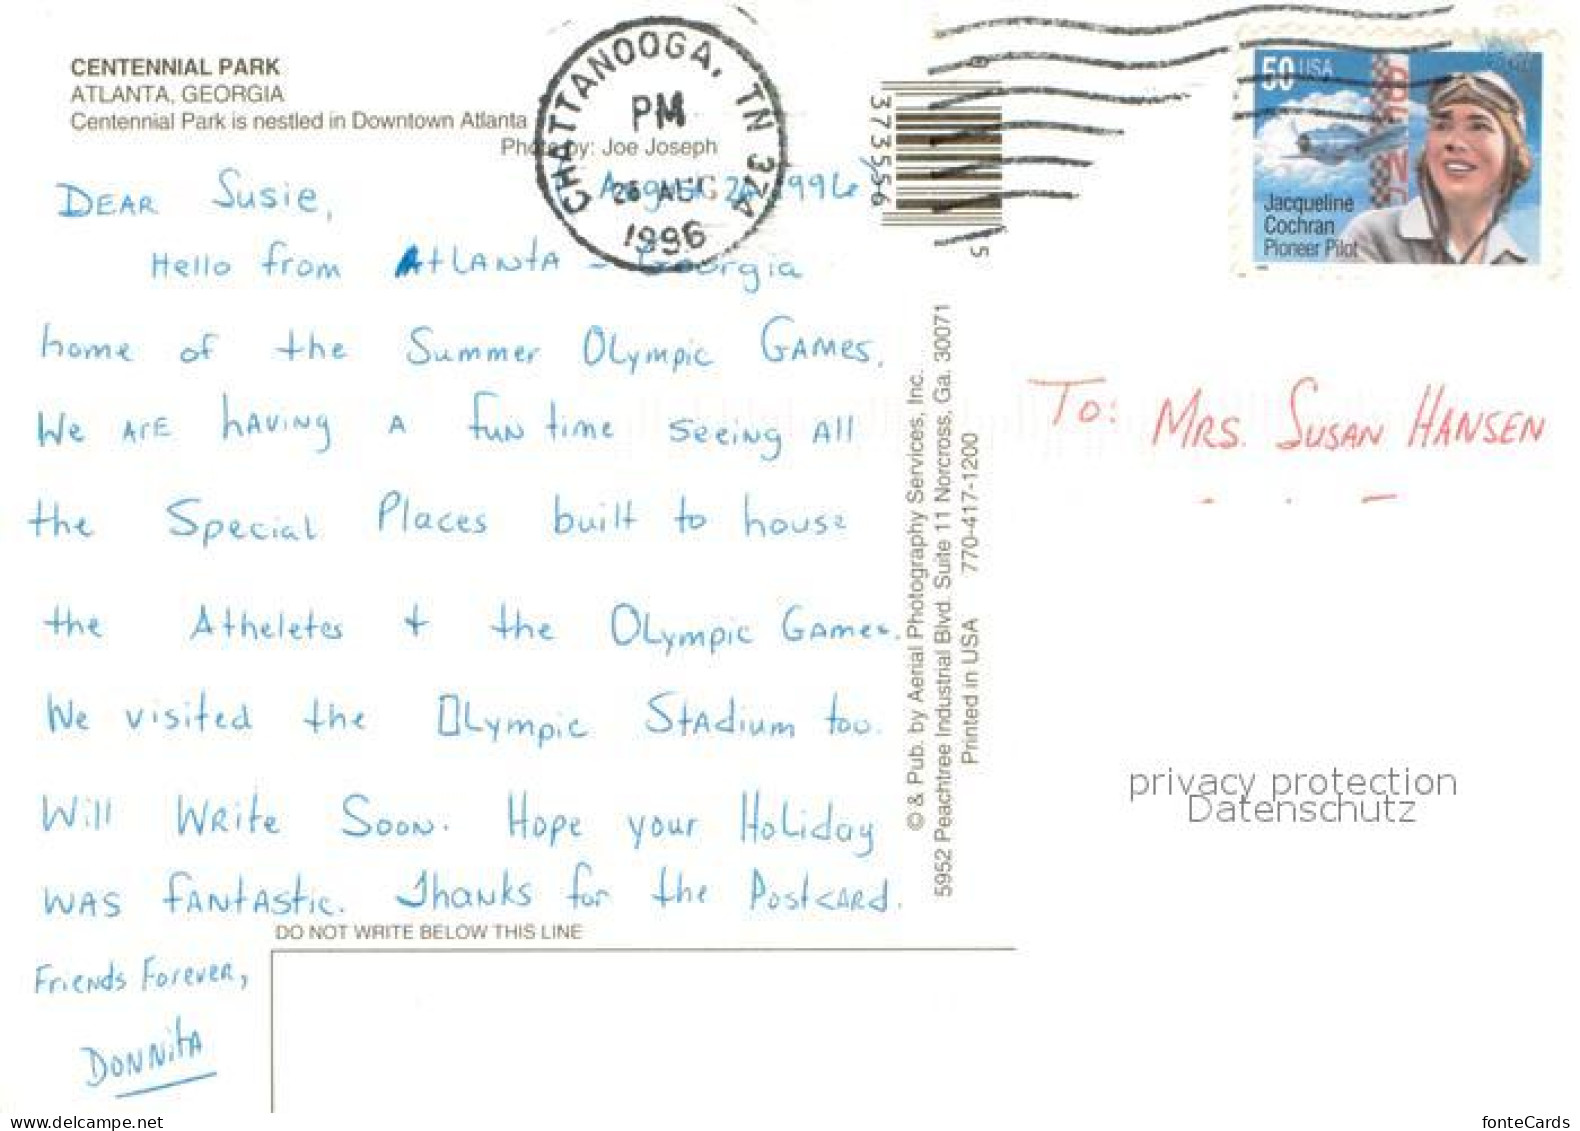 CENTENNIAL PARK
ATLANTA, GEORGIA
Centennial Park is nestled in Downtown Atlanta
Photo by: Joe Joseph
CHATTANOOGA, TN 374
PM
26 AUG
1996
373556
5
50 USA
Jacqueline
Cochran
Pioneer Pilot
DEAR Susie,
August 1996
Hello from AtLANtA - Georgia
home of the Summer OLympic GAMes.
We ArE hAViNg A fuN time seeing All
the SpeciaL Places built to house
the Atheletes + the OLympic GAmes.
We visited the OLympic StAdium too.
Will WRite SooN. Hope your HoLiday
WAS fANtAStic. ThaNks for the PostcARd.
FrieNds ForeveR,
DoNNitA
To: MRS. SUSAN HANSEN
© & Pub. by Aerial Photography Services, Inc.
5952 Peachtree Industrial Blvd. Suite 11 Norcross, Ga. 30071
Printed in USA 770-417-1200
privacy protection
Datenschutz
DO NOT WRITE BELOW THIS LINE
www.delcampe.net
fonteCards